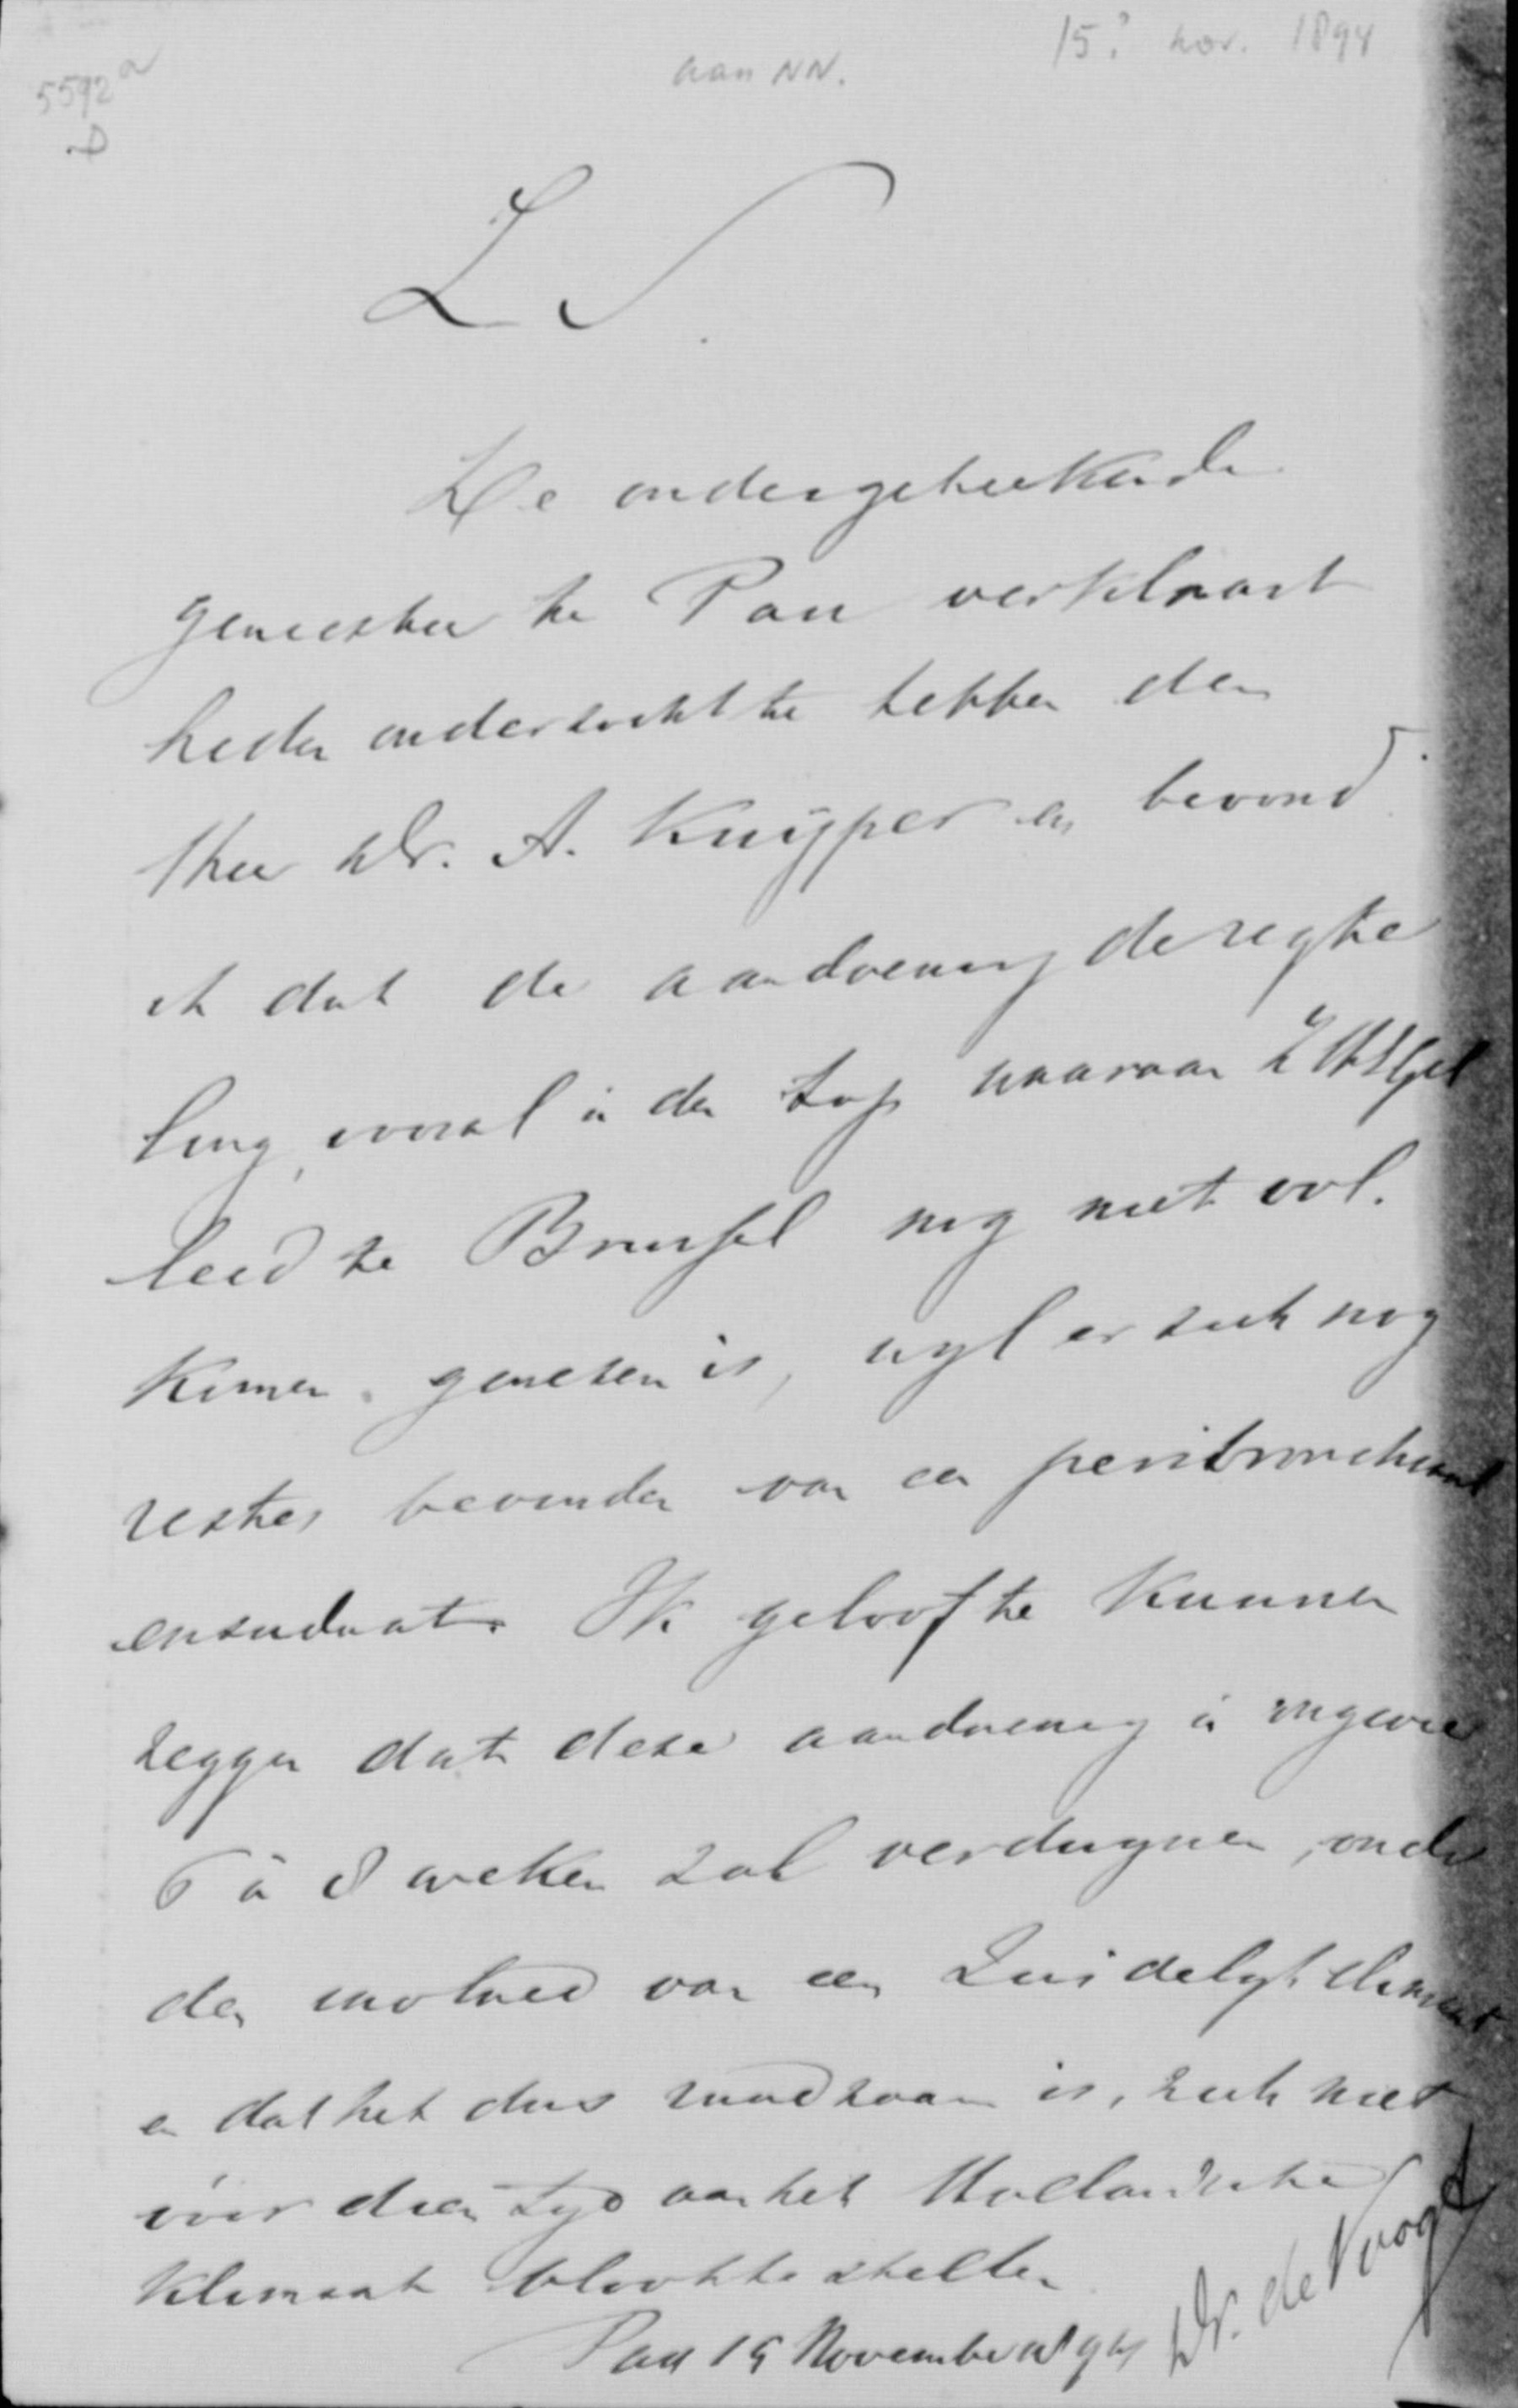 15? nov. 1894
aan NN.
5592 a
D
L S.
De ondergeteekende
geneesheer te Pau verklaart
heden onderzocht te hebben den
Heer Dr. A. Kuijper en bevond
ik dat de aandoening der regte
long, vooral in den top waaraan ZHEGel
leed te Brussel nog niet vol-
komen genezen is, wyl er zich nog
restes bevinden van een peribronchiaal
exsudaat. Ik geloof te kunnen
zeggen dat deze aandoening in ongeveer
6 à 8 weken zal verdwynen, onder
den invloed van een Zuidelyk klimaat
en dat het dus raadzaam is, zich niet
vóór dien tyd aan het Hollandsche
klimaat bloot te stellen
Pau 15 November 1894
Dr. de Voogt